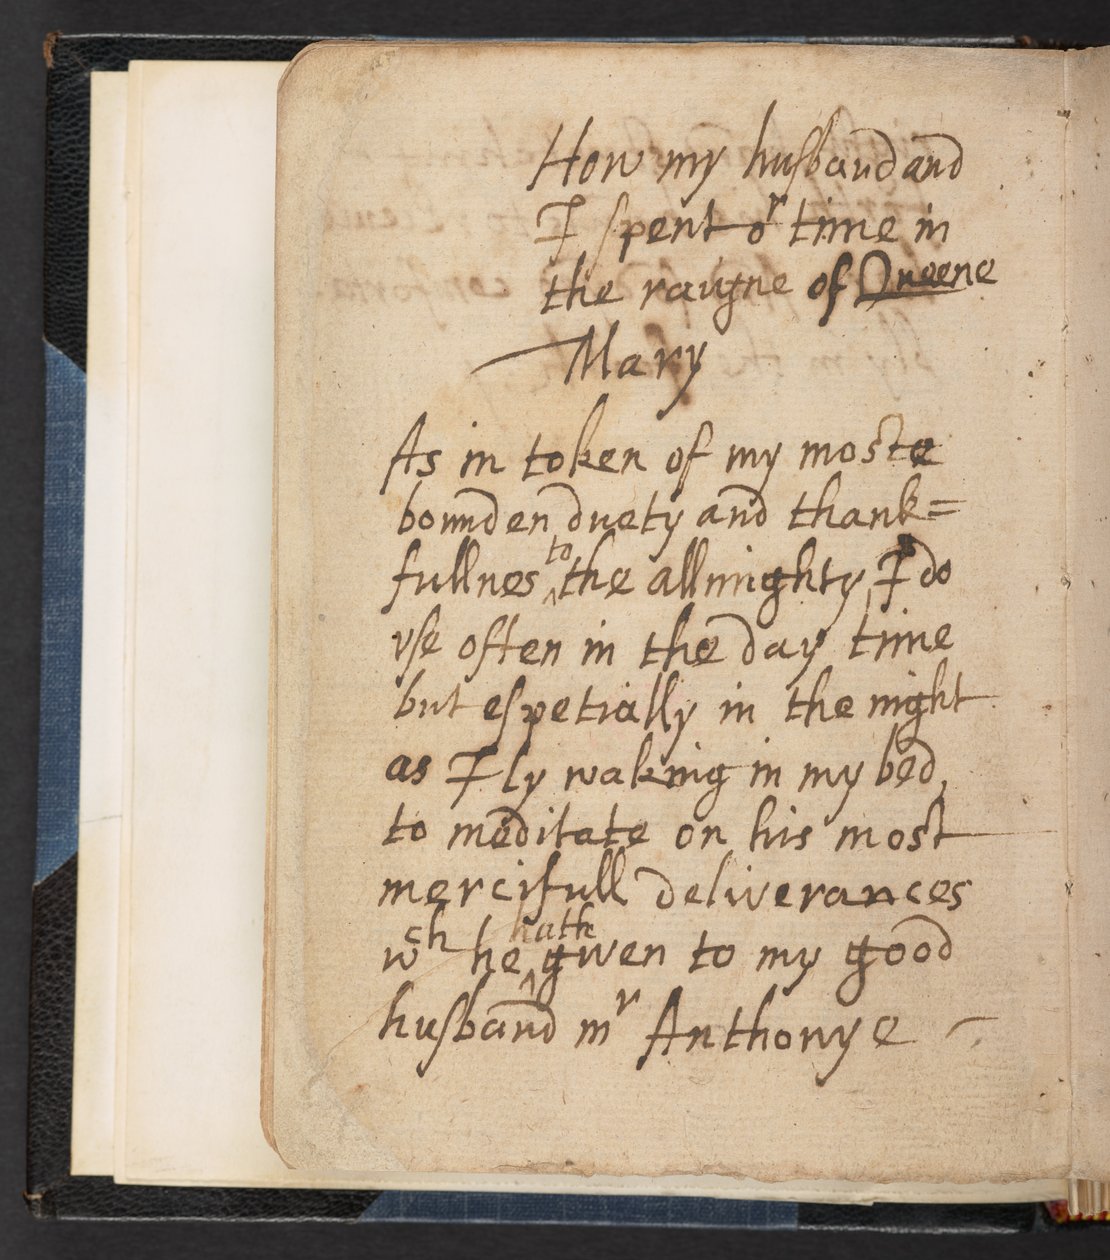 How my husband and
I spent or time in
the raigne of Queene
Mary
As in token of my moste
bounden duety and thank=
fullnes to the allmighty, I do
vse often in the day time
but espetially in the night
as I ly waking in my bed,
to meditate on his most
mercifull deliverances
wch he hath given to my good
husband mr Anthonye